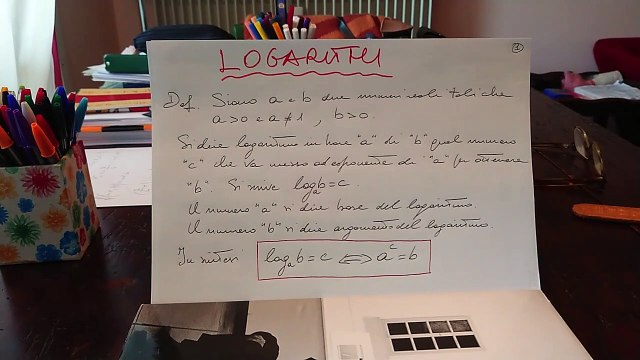 ①
LOGARITMI
Def. Siano a e b due numeri reali tali che
a>0 e a≠1, b>0.
Si dice logaritmo in base "a" di "b" quel numero
"c" che va messo ad esponente di "a" per ottenere
"b". Si scrive logₐb=c.
Il numero "a" si dice base del logaritmo.
Il numero "b" si dice argomento del logaritmo.
In sintesi logₐb=c ⟺ aᶜ=b